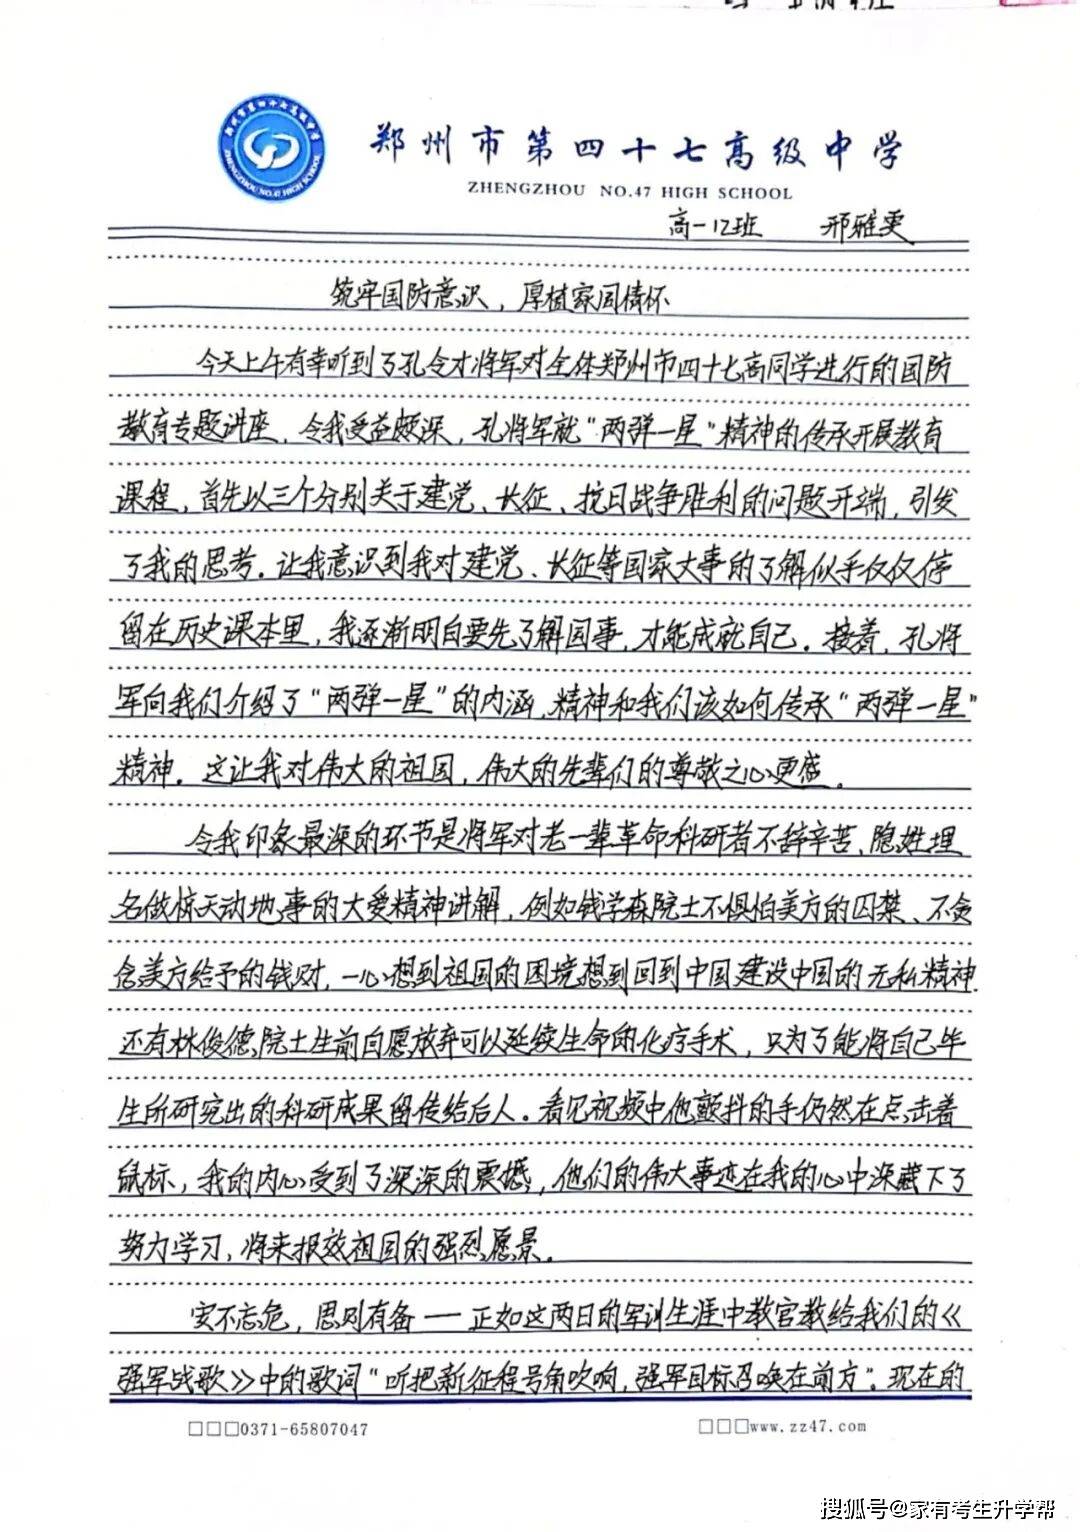 郑州市第四十七高级中学
ZHENGZHOU NO.47 HIGH SCHOOL
高一12班 邢雅雯
筑牢国防意识，厚植家国情怀
今天上午有幸听到了孔令才将军对全体郑州市四十七高同学进行的国防
教育专题讲座，令我受益颇深，孔将军就“两弹一星”精神的传承开展教育
课程，首先以三个分别关于建党、长征、抗日战争胜利的问题开端，引发
了我的思考。让我意识到我对建党、长征等国家大事的了解似乎仅仅停
留在历史课本里，我逐渐明白要先了解国事，才能成就自己。接着，孔将
军向我们介绍了“两弹一星”的内涵，精神和我们该如何传承“两弹一星”
精神。这让我对伟大的祖国，伟大的先辈们的尊敬之心更盛。
令我印象最深的环节是将军对老一辈革命科研者不辞辛苦、隐姓埋
名做惊天动地事的大爱精神讲解，例如钱学森院士不惧怕美方的囚禁、不贪
念美方给予的钱财，一心想到祖国的困境想到回到中国建设中国的无私精神.
还有林俊德院士生前自愿放弃可以延续生命的化疗手术，只为了能将自己毕
生所研究出的科研成果留传给后人。看见视频中他颤抖的手仍然在点击着
鼠标，我的内心受到了深深的震撼，他们的伟大事迹在我的心中深藏下了
努力学习，将来报效祖国的强烈愿景。
安不忘危，思则有备——正如这两日的军训生涯中教官教给我们的《
强军战歌》中的歌词“听把新征程号角吹响，强军目标召唤在前方”。现在的
□□□0371-65807047 □□□www.zz47.com
搜狐号@家有考生升学帮